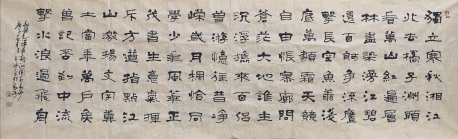 獨立寒秋湘江
北去橘子洲頭
看萬山紅遍層
林盡染漫江碧
透百舸爭流鷹
擊長空魚翔淺
底萬類霜天競
自由悵寥廓問
蒼茫大地誰主
沉浮攜來百侶
曾游憶往昔崢
嶸歲月稠恰同
學少年風華正
茂書生意氣揮
斥方遒指點江
山激揚文字糞
土當年萬戶侯
曾記否到中流
擊水浪遏飛舟